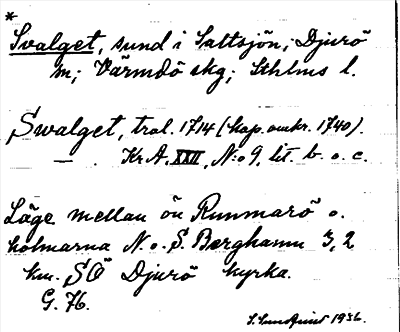 *
Svalget, sund i Saltsjön; Djurö
sn; Värmdö skg; Sthlms l.
Swalget, trol. 1714 (kop. omkr. 1740).
— . Kr A. XXII, N:o 9, lit. b. o. c.
Läge mellan ön Runmarö o.
holmarna N. o. S. Berghamn 3,2
km. SÖ Djurö kyrka.
G. 76.
1936.